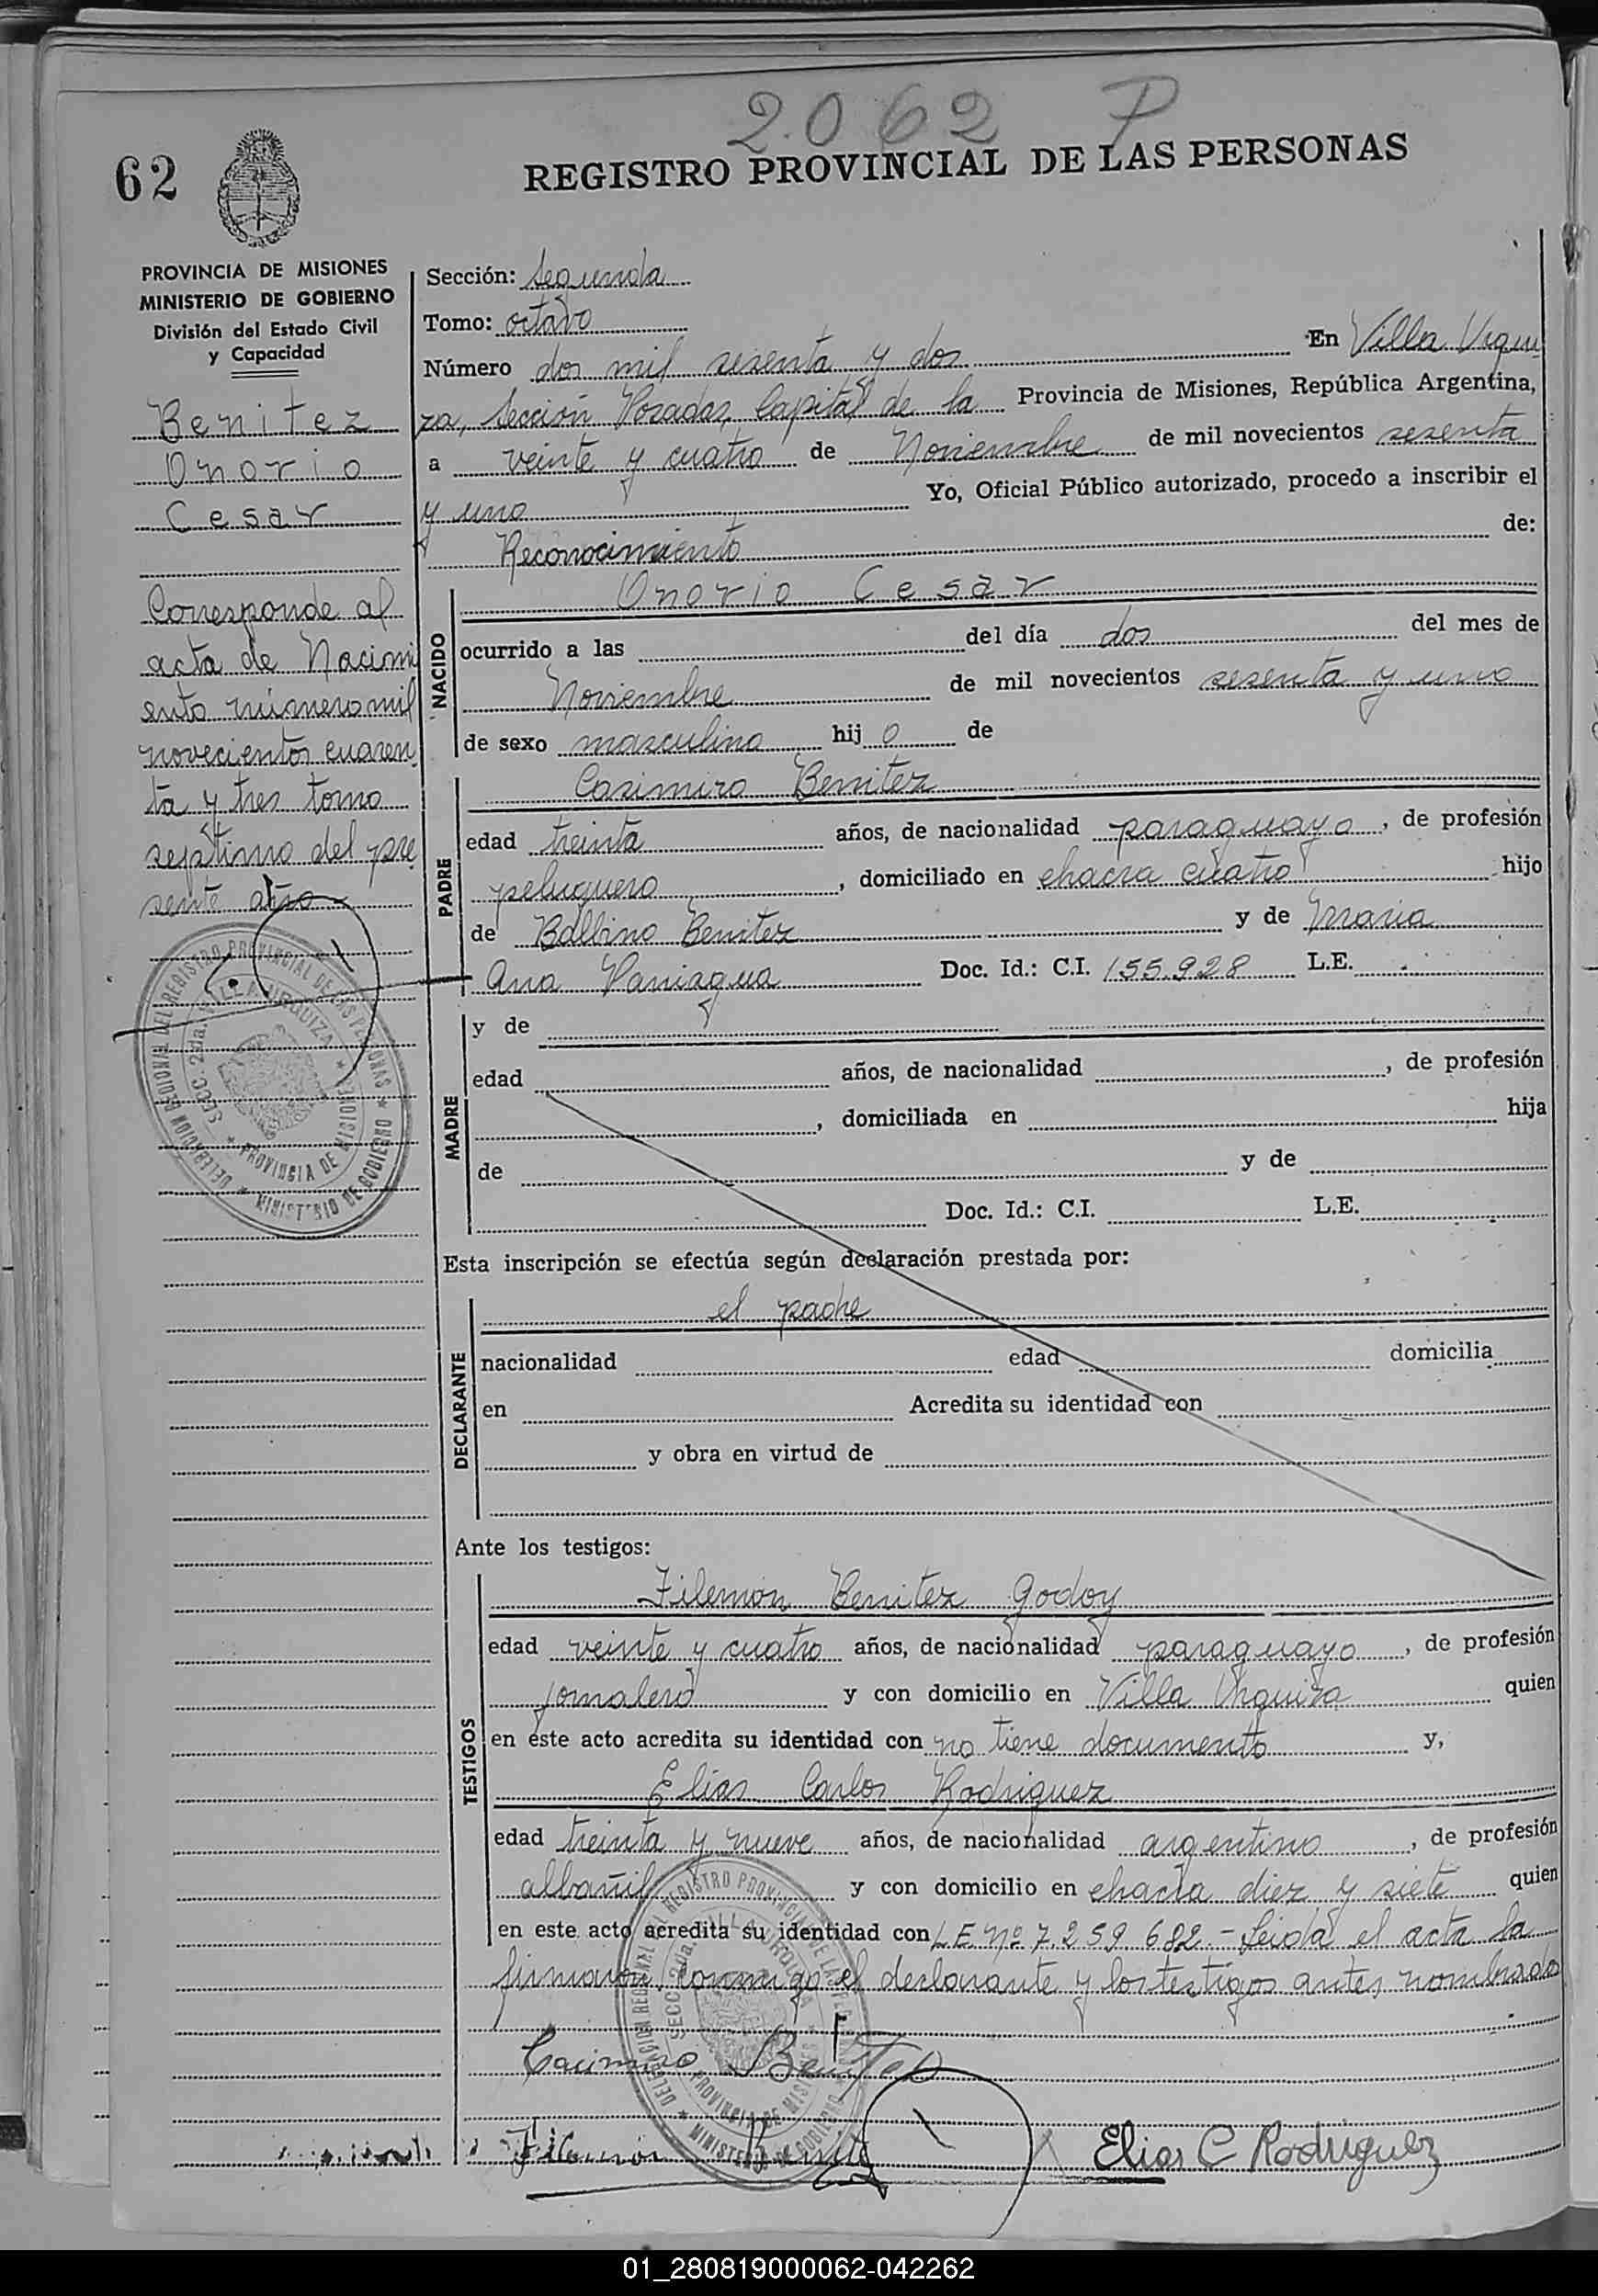 2.062 P
62
REGISTRO PROVINCIAL DE LAS PERSONAS
PROVINCIA DE MISIONES
MINISTERIO DE GOBIERNO
División del Estado Civil
y Capacidad
Benitez
Onorio
Cesar
Corresponde al
acta de Nacimi
ento número mil
novecientos cuaren
ta y tres tomo
septimo del pre
sente año
DELEGACION REGIONAL DEL REGISTRO PROVINCIAL DE LAS PERSONAS ★ MINISTERIO DE GOBIERNO ★
SECC. 2da. VILLA URQUIZA ★ PROVINCIA DE MISIONES ★
Sección: Segunda
Tomo: octavo
Número dos mil sesenta y dos En Villa Urqui
za, Sección Posadas, Capital de la Provincia de Misiones, República Argentina,
a veinte y cuatro de Noviembre de mil novecientos sesenta
y uno Yo, Oficial Público autorizado, procedo a inscribir el
Reconocimiento de:
NACIDO
Onorio Cesar
ocurrido a las del día dos del mes de
Noviembre de mil novecientos sesenta y uno
de sexo masculino hijo de
PADRE
Casimiro Benitez
edad treinta años, de nacionalidad paraguayo, de profesión
peluquero, domiciliado en chacra cuatro hijo
de Balbino Benitez y de Maria
Ana Paniagua Doc. Id.: C.I. 155.928 L.E.
MADRE
y de
edad años, de nacionalidad , de profesión
, domiciliada en hija
de y de
Doc. Id.: C.I. L.E.
Esta inscripción se efectúa según declaración prestada por:
DECLARANTE
el padre
nacionalidad edad domicilia
en Acredita su identidad con
y obra en virtud de
Ante los testigos:
TESTIGOS
Filemón Benitez Godoy
edad veinte y cuatro años, de nacionalidad paraguayo, de profesión
jornalero y con domicilio en Villa Urquiza quien
en este acto acredita su identidad con no tiene documento y,
Elias Carlos Rodriguez
edad treinta y nueve años, de nacionalidad argentino, de profesión
albañil y con domicilio en chacra diez y siete quien
en este acto acredita su identidad con L.E. Nº 7.259.682.- Leida el acta la
firmaron conmigo el declarante y los testigos antes nombrado
DELEGACION REGIONAL DEL REGISTRO PROVINCIAL DE LAS PERSONAS ★ MINISTERIO DE GOBIERNO ★
SECC. 2da. VILLA URQUIZA ★ PROVINCIA DE MISIONES ★
Casimiro Benitez
Filemon Benitez
Elias C Rodriguez
01_280819000062-042262